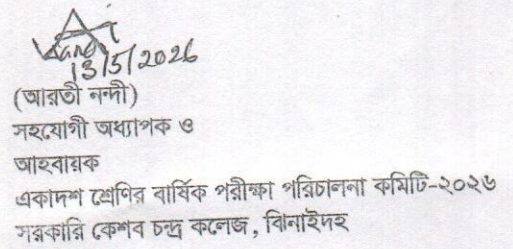 13/5/2026
(আরতী নন্দী)
সহযোগী অধ্যাপক ও
আহবায়ক
একাদশ শ্রেণির বার্ষিক পরীক্ষা পরিচালনা কমিটি-২০২৬
সরকারি কেশব চন্দ্র কলেজ, ঝিনাইদহ